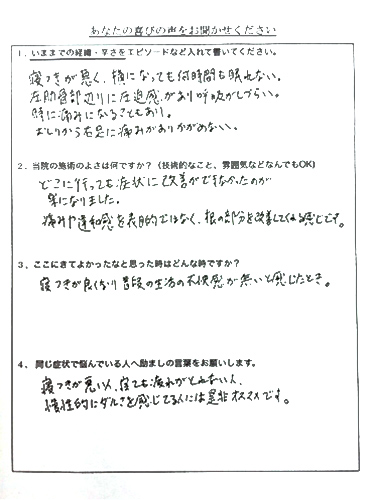 あなたの喜びの声をお聞かせください
1．いままでの経緯・辛さをエピソードなど入れて書いてください。
寝つきが悪く、横になっても何時間も眠れない。
左肋骨部辺りに圧迫感があり呼吸がしづらい。
時に痛みになることもあり。
おしりから右足に痛みがありかがめない。
2．当院の施術のよさは何ですか？（技術的なこと、雰囲気などなんでもOK）
どこに行っても症状に改善ができなかったのが
楽になりました。
痛みや違和感を表面的ではなく、根の部分を改善してくれる感じです。
3．ここにきてよかったなと思った時はどんな時ですか？
寝つきが良くなり普段の生活の不快感が無いと感じたとき。
4．同じ症状で悩んでいる人へ励ましの言葉をお願いします。
寝つきが悪い人、寝ても疲れがとれない人、
慢性的にダルさを感じてる人には是非オススメです。